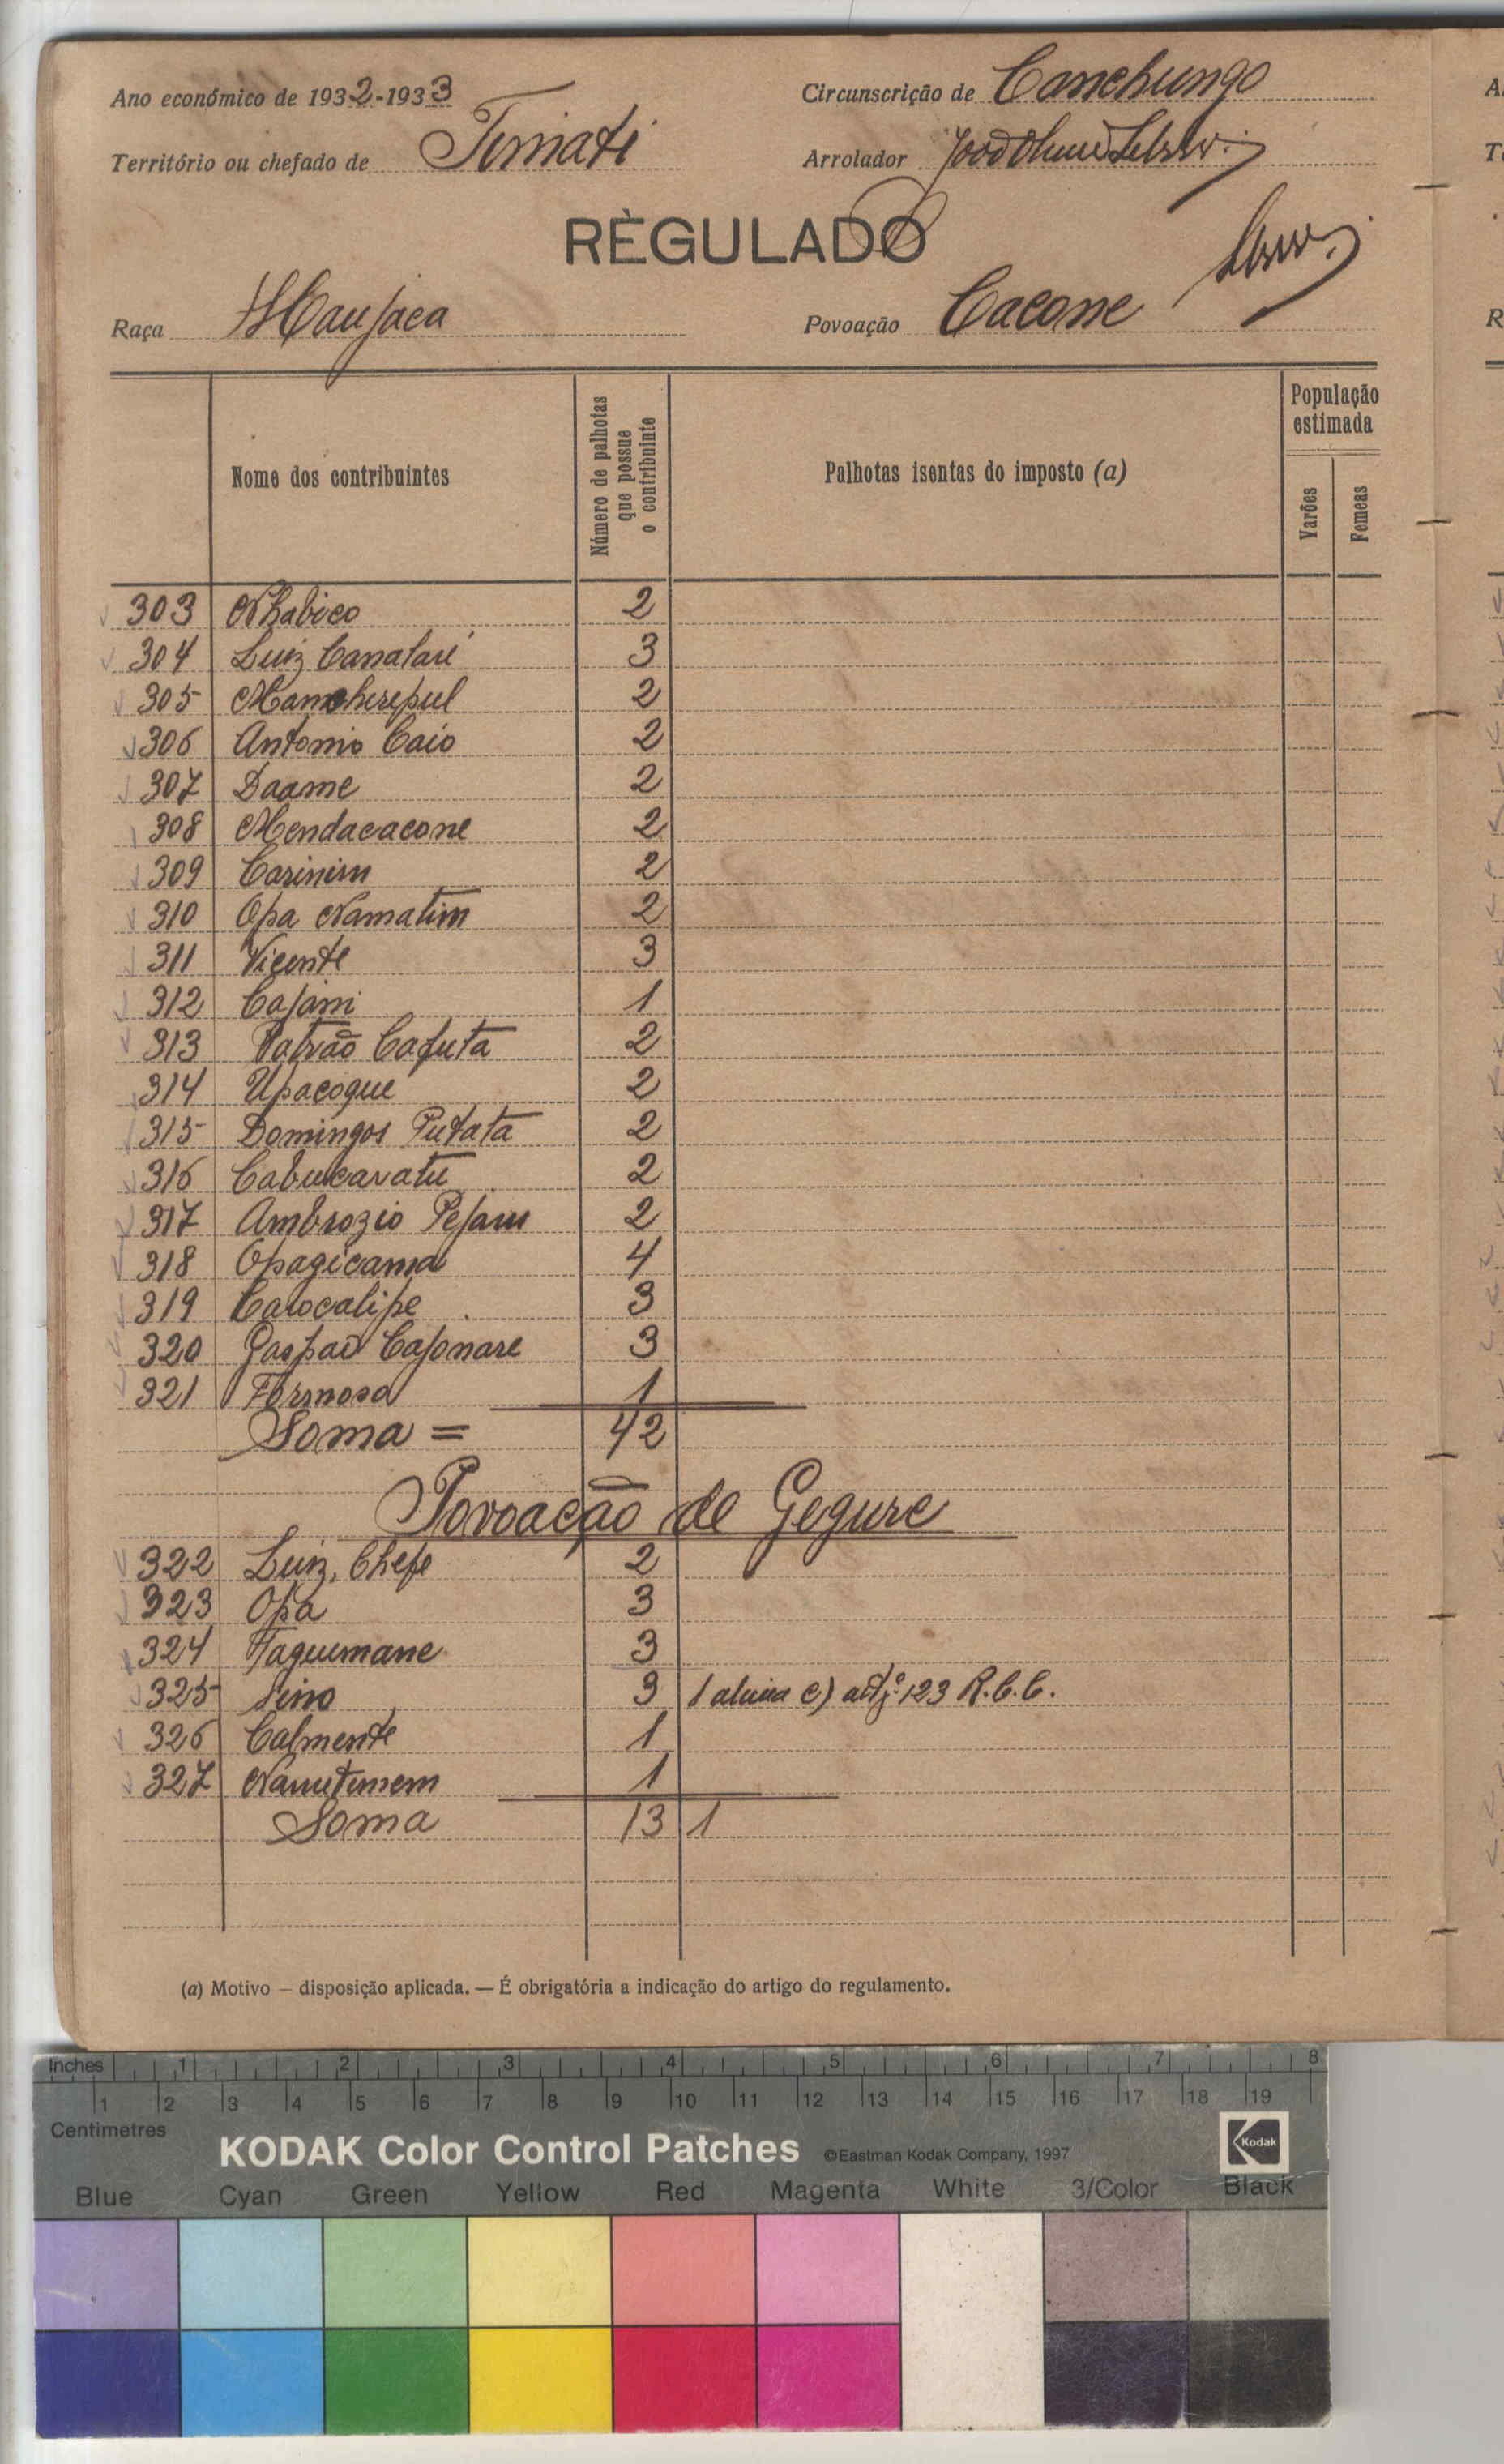 Ano económico de 1932-1933
Circunscrição de Canchungo
Território ou chefado de Timati
Arrolador
RÈGULADO
Raça Manjaca
Povoação Cacone
Nome dos contribuintes
Número de palhotas que possue o contribuinte
Palhotas isentas do imposto (a)
População estimada
Varões
Femeas
303 Nhabico 2
304 Luiz Canalaré 3
305 2
306 Antonio Caio 2
307 Daame 2
308 Mendacacone 2
309 Carinim 2
310 Opa Namatim 2
311 Vicente 3
312 Cajani 1
313 Patrão Cafuta 2
314 Upacogue 2
315 Domingos Putata 2
316 Cabucavatu 2
317 Ambrozio 2
318 Opagicama 4
319 Carocalipe 3
320 Gaspar Cajonare 3
321 Formoso 1
Soma = 42
Povoação de Gegure
322 Luiz, Chefe 2
323 Opa 3
324 Taguemane 3
325 Sino 3 1 alinia c) artº 123 R.C.C.
326 Calmente 1
327 1
Soma 13 1
(a) Motivo — disposição aplicada. — É obrigatória a indicação do artigo do regulamento.
Inches 1 2 3 4 5 6 7 8
1 2 3 4 5 6 7 8 9 10 11 12 13 14 15 16 17 18 19
Centimetres
KODAK Color Control Patches ©Eastman Kodak Company, 1997 Kodak
Blue Cyan Green Yellow Red Magenta White 3/Color Black